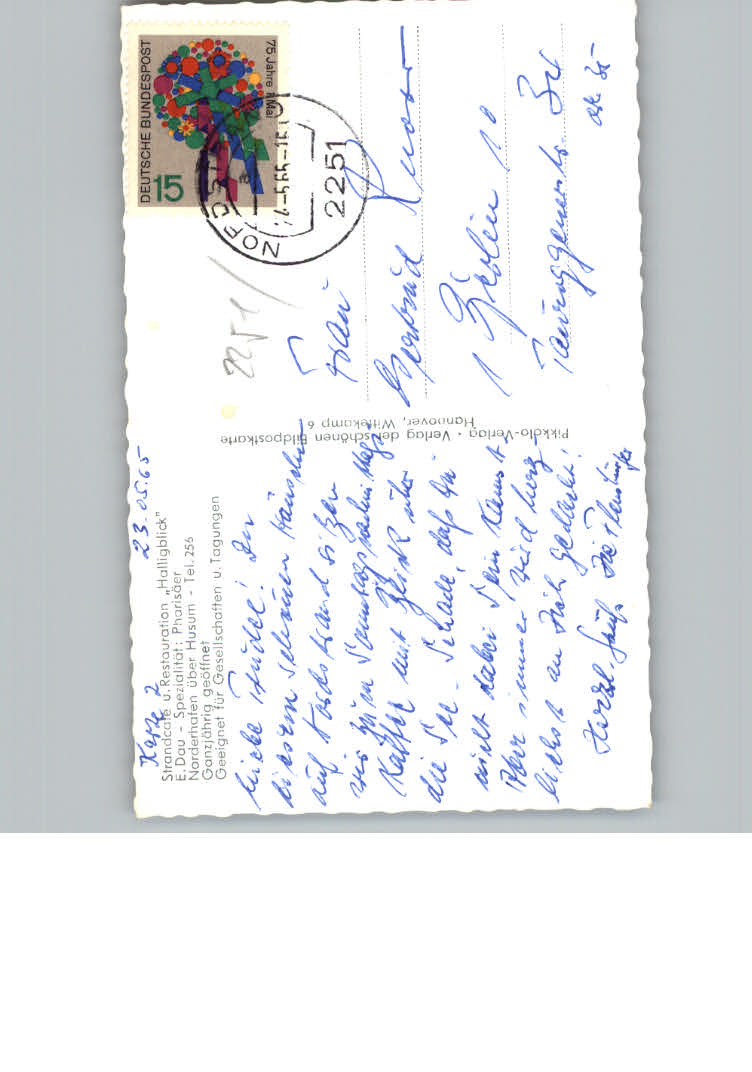 Karte 2
23.05.65
Strandcafé u. Restauration „Halligblick"
E. Dau - Spezialität: Pharisäer
Norderhafen über Husum - Tel. 256
Ganzjährig geöffnet
Geeignet für Gesellschaften u. Tagungen
Liebe Trudel! In
diesem schönen Häuschen
auf Nordstrand sitzen
wir zum Samstagnachmittags-
Kaffee mit Blick über
die See. Schade, daß Du
nicht dabei sein kannst
Aber immer wird herz-
lichst an Dich gedacht!
Herzl. Grüße
Pikkolo-Verlag · Verlag der schönen Bildpostkarte
Hannover, Wittekamp 6
DEUTSCHE BUNDESPOST
15
75 Jahre 1. Mai
NORDSTRAND
a
2251
2251
Frau
Gertrud
1 Berlin 10
Tauroggener Str.